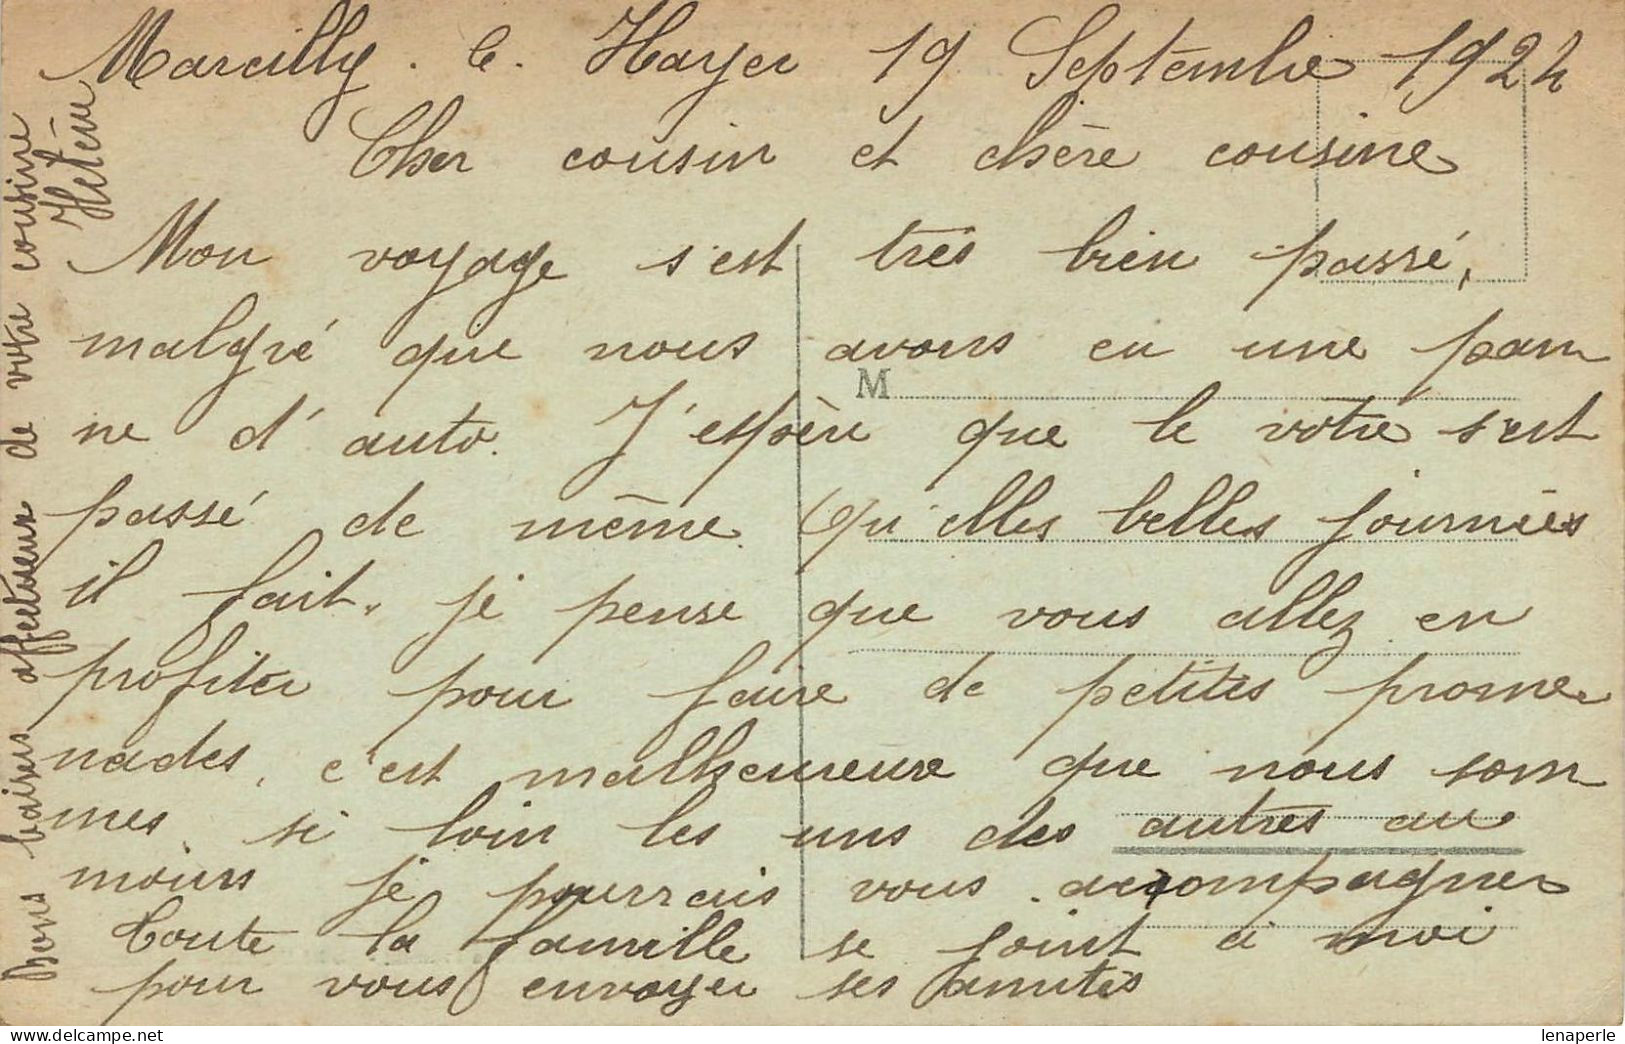 Marcilly. le. Hayer 19 Septembre 1924
Cher cousin et chère cousine
Mon voyage s'est très bien passé,
malgré que nous avons eu une pan
M
ne d'auto. J'espère que le votre s'est
passé de même. Qu'elles belles journées
il fait. je pense que vous allez en
profiter pour faire de petites prome-
nades, c'est malheureuse que nous som
mes si loin les uns des autres au
moins je pourrais vous accompagner
Toute la famille se joint à moi
pour vous envoyer ses amitiés
Bons baisers affectueux de votre cousine
lenaperle